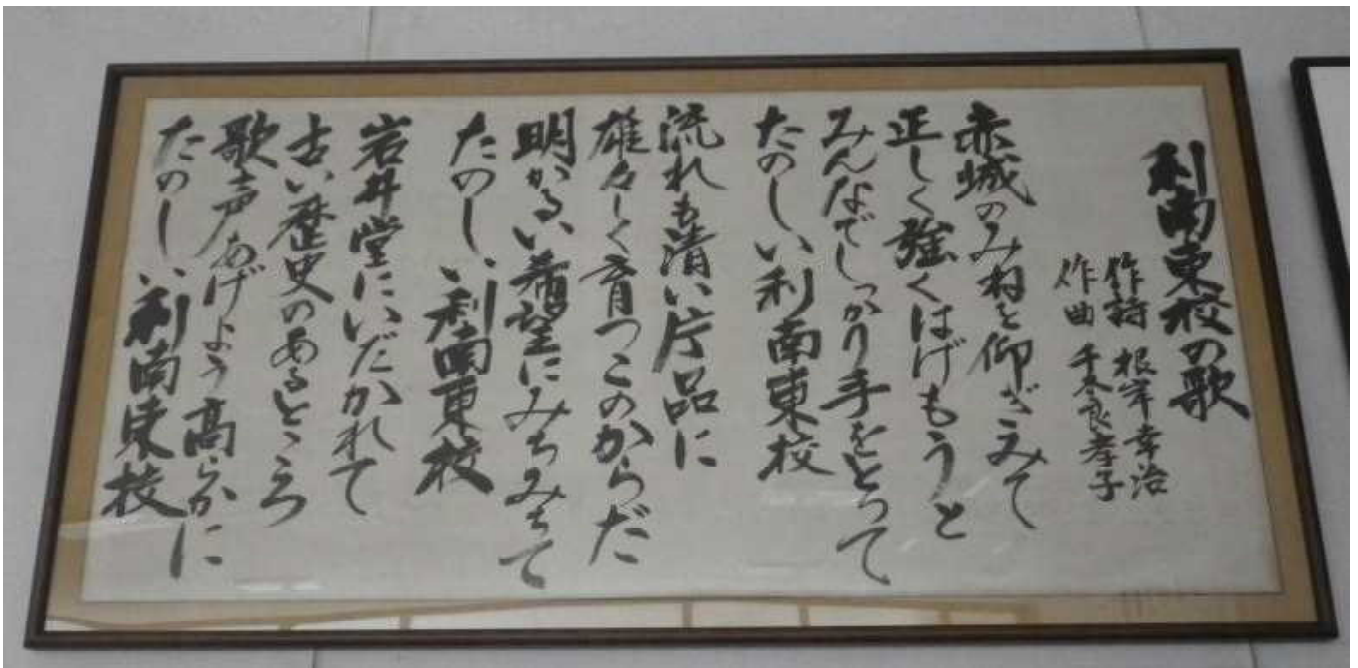 利南東校の歌
作詩 根岸幸治
作曲 千奈良孝子
赤城のみねを仰ぎみて
正しく強くはげもうと
みんなでしっかり手をとって
たのしい利南東校
流れも清い片品に
雄々しく育つこのからだ
明かるい希望にみちみちて
たのしい利南東校
岩井堂にいだかれて
古い歴史のあるところ
歌声あげよう高らかに
たのしい利南東校